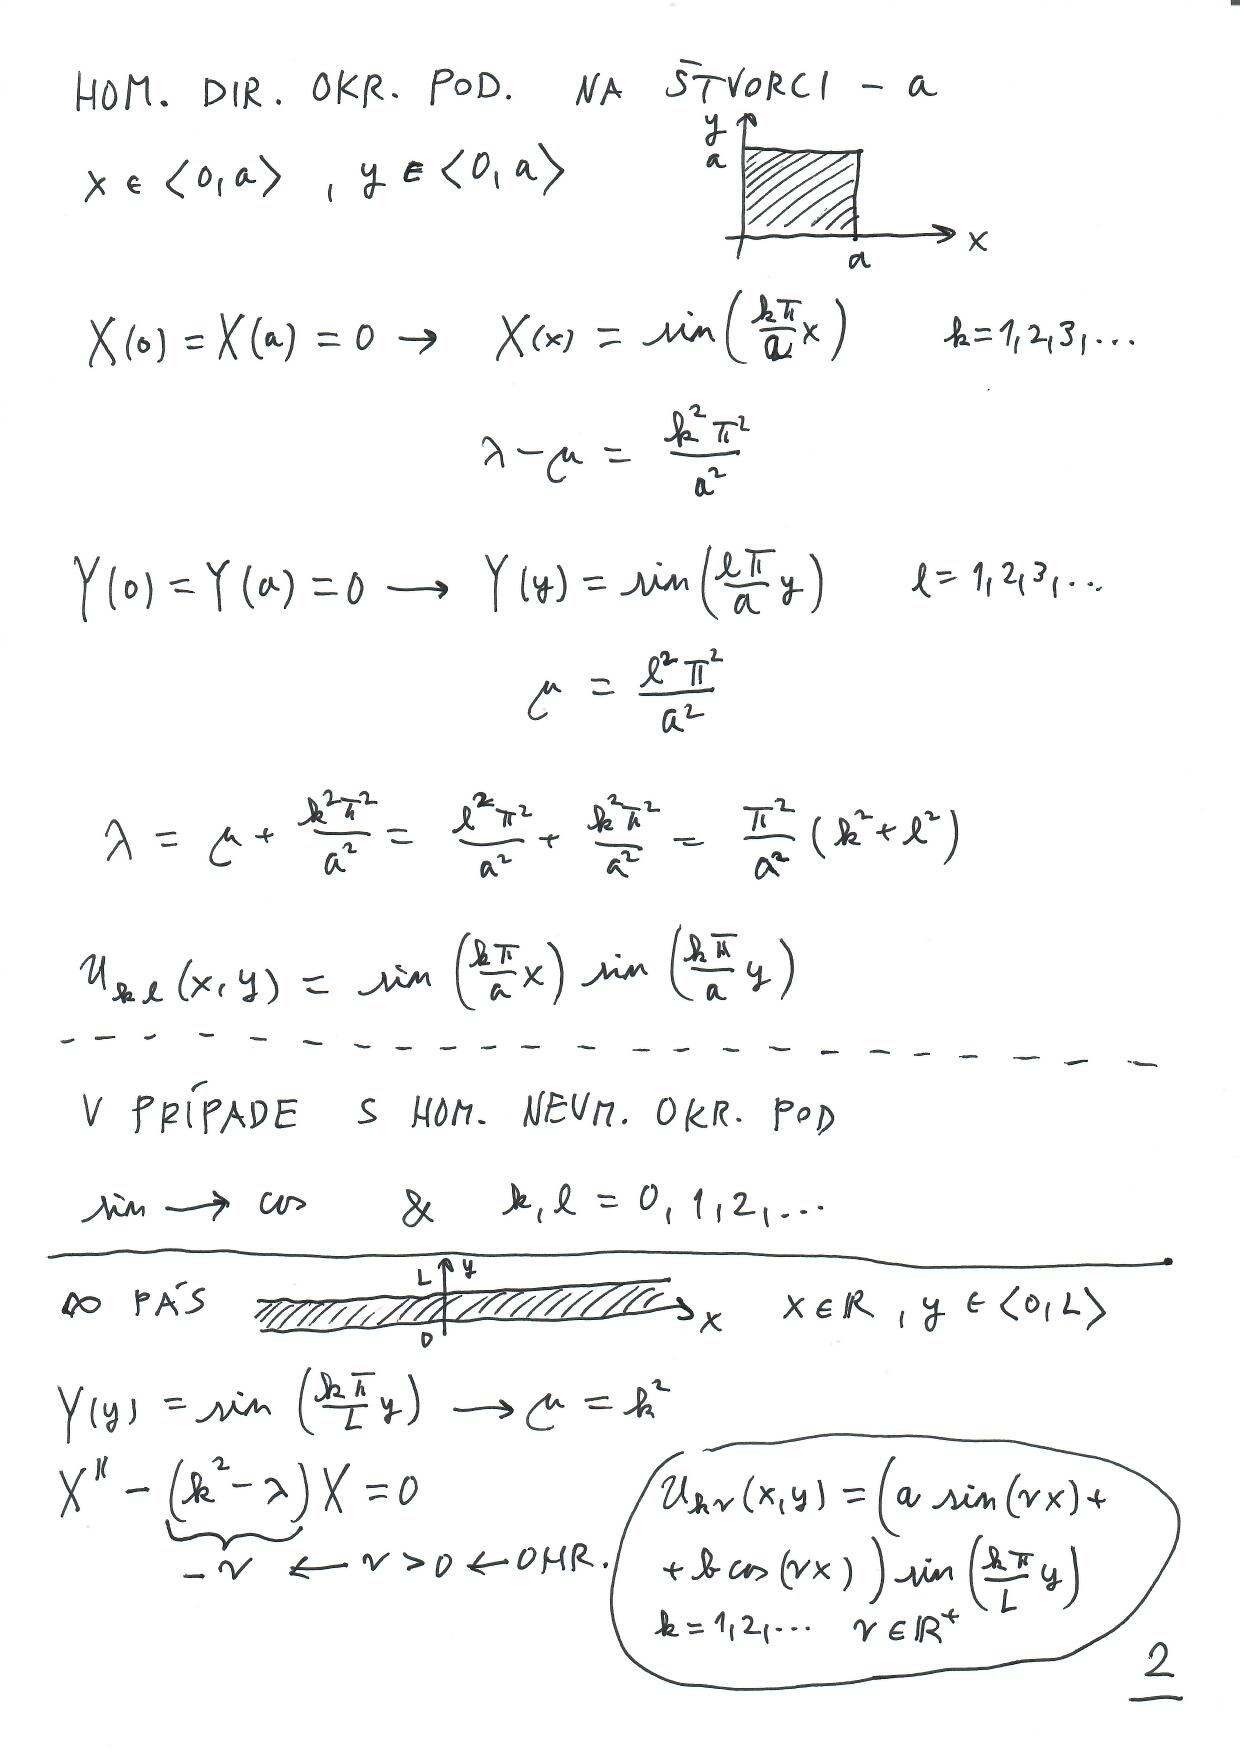 HOM. DIR. OKR. POD. NA ŠTVORCI - a
x ∈ <0,a> , y ∈ <0,a>
y
a
x
a
X(0) = X(a) = 0 → X(x) = sin(kπ/a x) k=1,2,3,...
λ-μ = k²π²/a²
Y(0) = Y(a) = 0 → Y(y) = sin(lπ/a y) l= 1,2,3,...
μ = l²π²/a²
λ = μ + k²π²/a² = l²π²/a² + k²π²/a² = π²/a² (k²+l²)
u_kl(x,y) = sin(kπ/a x) sin(kπ/a y)
V PRÍPADE S HOM. NEUM. OKR. POD
sin → cos & k,l = 0,1,2,...
∞ PÁS L y 0 x x∈ℝ , y ∈ <0,L>
Y(y) = sin(kπ/L y) → μ = k²
X'' - (k²-λ)X = 0
-ν ← ν>0 ← OHR.
u_kν(x,y) = (a sin(νx)+
+ b cos(νx)) sin(kπ/L y)
k=1,2,... ν∈ℝ⁺
2